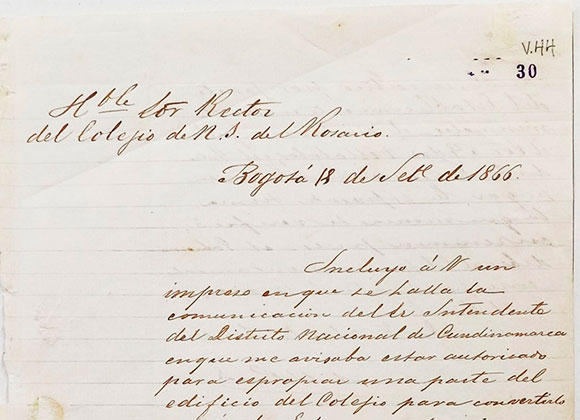 V.HH
30
Hble Sor Rector
del Colegio de N. S. del Rosario.
Bogotá 18 de Sete de 1866.
Incluyo á V un
impreso en que se halla la
comunicacion del Sr Intendente
del Distrito Nacional de Cundinamarca
en que me avisaba estar autorizado
para espropiar una parte del
edificio del Colegio para convertirlo